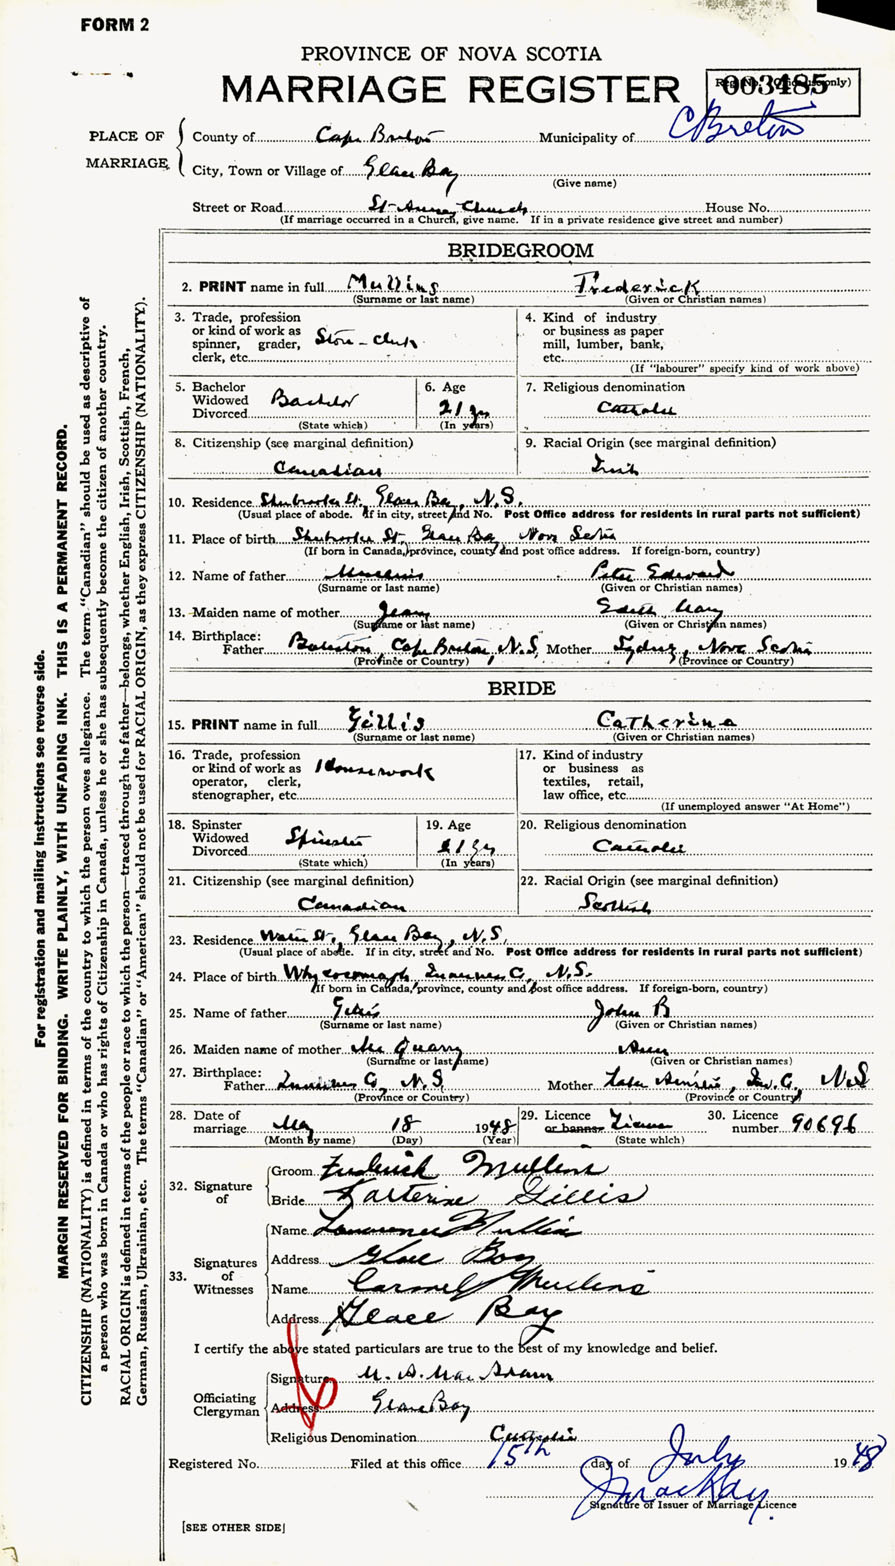 FORM 2
PROVINCE OF NOVA SCOTIA
MARRIAGE REGISTER
003485
PLACE OF MARRIAGE
County of Cape Breton Municipality of C Breton
City, Town or Village of Glace Bay
(Give name)
Street or Road St. Anne's Church House No.
(If marriage occurred in a Church, give name. If in a private residence give street and number)
BRIDEGROOM
2. PRINT name in full Mullins Frederick
(Surname or last name) (Given or Christian names)
3. Trade, profession or kind of work as spinner, grader, clerk, etc. Store-clerk
4. Kind of industry or business as paper mill, lumber, bank, etc.
(If "labourer" specify kind of work above)
5. Bachelor Widowed Divorced Bachelor
(State which)
6. Age 21 yrs
(In years)
7. Religious denomination
Catholic
8. Citizenship (see marginal definition)
Canadian
9. Racial Origin (see marginal definition)
Irish
10. Residence St. Glace Bay, N.S.
(Usual place of abode. If in city, street and No. Post Office address for residents in rural parts not sufficient)
11. Place of birth St. Glace Bay Nova Scotia
(If born in Canada, province, county and post office address. If foreign-born, country)
12. Name of father Mullins Peter Edward
(Surname or last name) (Given or Christian names)
13. Maiden name of mother Edith Mary
(Surname or last name) (Given or Christian names)
14. Birthplace:
Father Cape Breton, N.S. Mother Sydney, Nova Scotia
(Province or Country) (Province or Country)
BRIDE
15. PRINT name in full Gillis Catherine
(Surname or last name) (Given or Christian names)
16. Trade, profession or kind of work as operator, clerk, stenographer, etc. Housework
17. Kind of industry or business as textiles, retail, law office, etc.
(If unemployed answer "At Home")
18. Spinster Widowed Divorced Spinster
(State which)
19. Age 21 yrs
(In years)
20. Religious denomination
Catholic
21. Citizenship (see marginal definition)
Canadian
22. Racial Origin (see marginal definition)
Scottish
23. Residence St., Glace Bay, N.S.
(Usual place of abode. If in city, street and No. Post Office address for residents in rural parts not sufficient)
24. Place of birth Whycocomagh Inverness Co., N.S.
(If born in Canada, province, county and post office address. If foreign-born, country)
25. Name of father Gillis John B
(Surname or last name) (Given or Christian names)
26. Maiden name of mother Mc Quarry Ann
(Surname or last name) (Given or Christian names)
27. Birthplace:
Father Inverness Co, N.S. Mother Lake Ainslie, Inv. Co., N.S
(Province or Country) (Province or Country)
28. Date of marriage May 18 1948
(Month by name) (Day) (Year)
29. Licence or banns License
(State which)
30. Licence number 90696
32. Signature of
Groom Frederick Mullins
Bride Katherine Gillis
33. Signatures of Witnesses
Name Lawrence Mullins
Address Glace Bay
Name Carmel Mullins
Address Glace Bay
I certify the above stated particulars are true to the best of my knowledge and belief.
Officiating Clergyman
Signature M. A. MacAdam
Address Glace Bay
Religious Denomination Catholic
Registered No. Filed at this office 15th day of July 1948
J MacKay
Signature of Issuer of Marriage Licence
[SEE OTHER SIDE]
For registration and mailing instructions see reverse side.
MARGIN RESERVED FOR BINDING. WRITE PLAINLY, WITH UNFADING INK. THIS IS A PERMANENT RECORD.
CITIZENSHIP (NATIONALITY) is defined in terms of the country to which the person owes allegiance. The term "Canadian" should be used as descriptive of
a person who was born in Canada or who has rights of Citizenship in Canada, unless he or she has subsequently become the citizen of another country.
RACIAL ORIGIN is defined in terms of the people or race to which the person—traced through the father—belongs, whether English, Irish, Scottish, French,
German, Russian, Ukrainian, etc. The terms "Canadian" or "American" should not be used for RACIAL ORIGIN, as they express CITIZENSHIP (NATIONALITY).